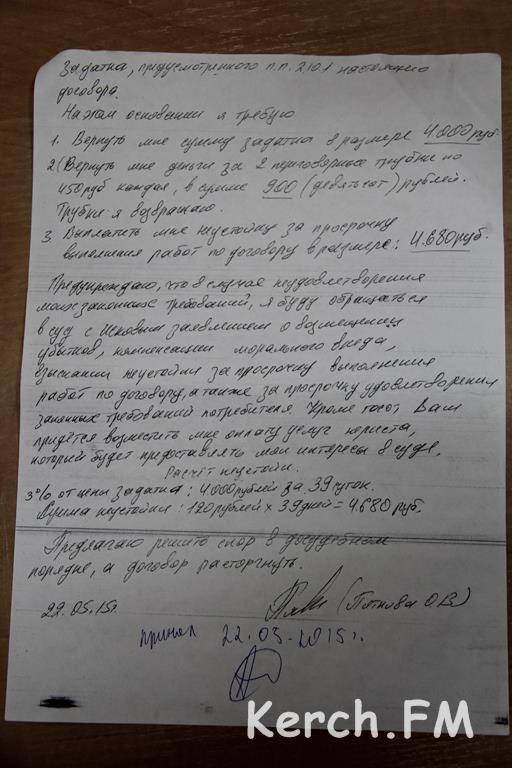 Задатка, предусмотренного п.п. 2.10.1 настоящего
договора.
На этом основании я требую
1. Вернуть мне сумму задатка в размере 4000 руб.
2. (Вернуть мне деньги за 2 переговорные трубки по
450 руб каждая, в сумме 900 (девятьсот) рублей.
Трубки я возвращаю.
3. Выплатить мне неустойку за просрочку
выполнения работ по договору в размере: 4.680 руб.
Предупреждаю, что в случае неудовлетворения
моих законных требований, я буду обращаться
в суд с исковым заявлением о возмещении
убытков, компенсации морального вреда,
взыскании неустойки за просрочку выполнения
работ по договору, а также за просрочку удовлетворения
законных требований потребителя. Кроме того Вам
придётся возместить мне оплату услуг юриста,
который будет представлять мои интересы в суде.
Расчёт неустойки.
3% от цены задатка: 4.000 рублей за 39 суток.
Сумма неустойки: 120 рублей х 39 дней = 4.680 руб.
Предлагаю решить спор в досудебном
порядке, а договор расторгнуть.
22.05.15г. О.В.)
принял 22.05.2015г.
Kerch.FM